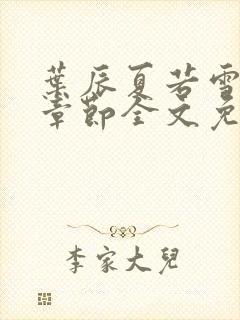 葉辰夏若雪
章節全文免
李家大兒